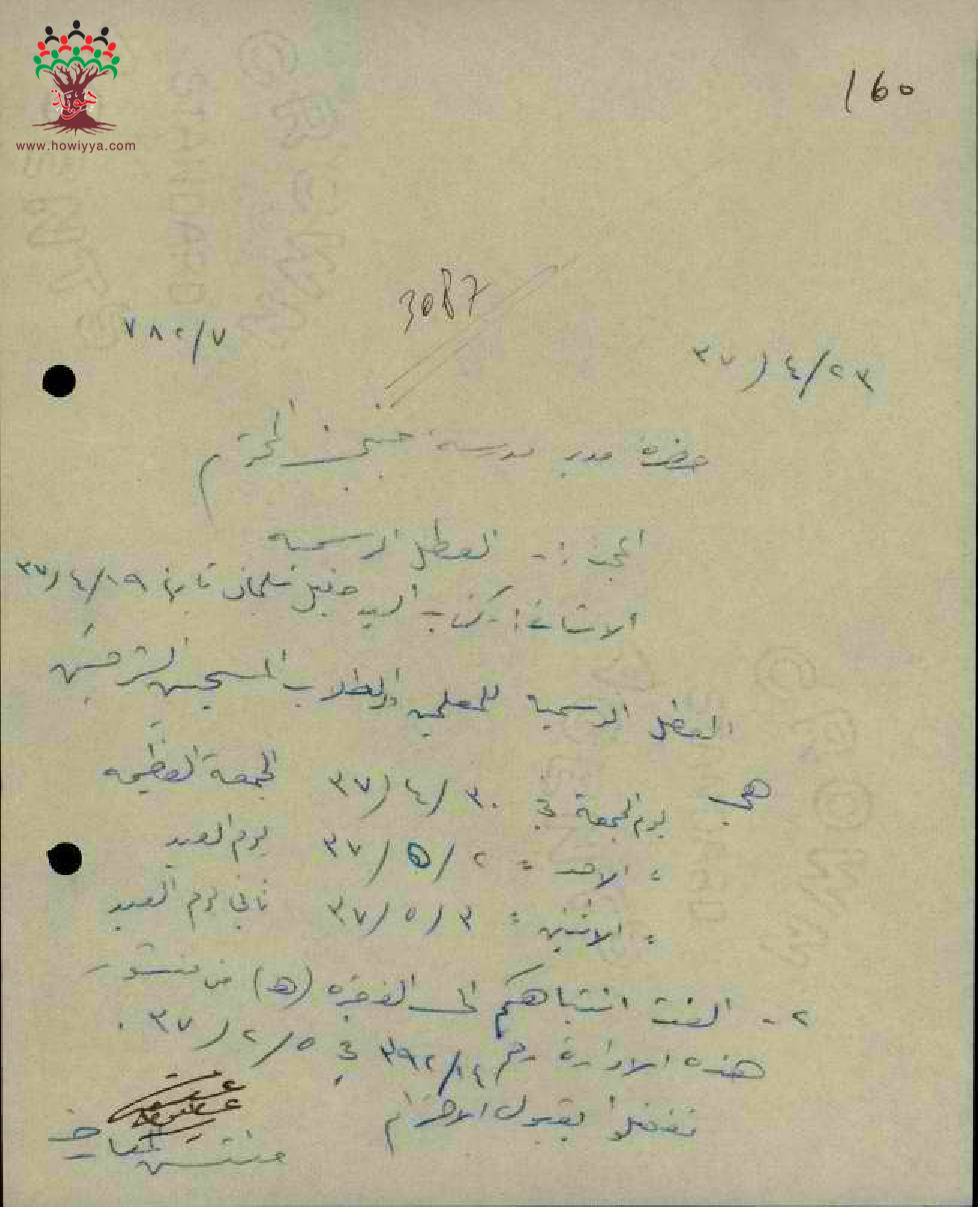 هوية
www.howiyya.com
160
3087
٧٨٢/٧
٢٣/٤/٣٧
حضرة مدير مدرسة المحترم
البحث :- العطل الرسمية
الاشارة :- كتاب السيد خليل تاريخ ١٩/٤/٣٧
العطل الرسمية للمعلمين والطلاب المسيحيين الشرقيين
هي يوم الجمعة في ٣٠/٤/٣٧ الجمعة العظيمة
" الاحد " ٢/٥/٣٧ يوم العيد
" الاثنين " ٣/٥/٣٧ ثاني يوم العيد
٢- الفت انتباهكم الى الفقرة (ه) من منشور
هذه الادارة رقم ٣٩٢/١٤ في ٥/٢/٣٧ .
تفضلوا بقبول الاحترام
مفتش المعارف